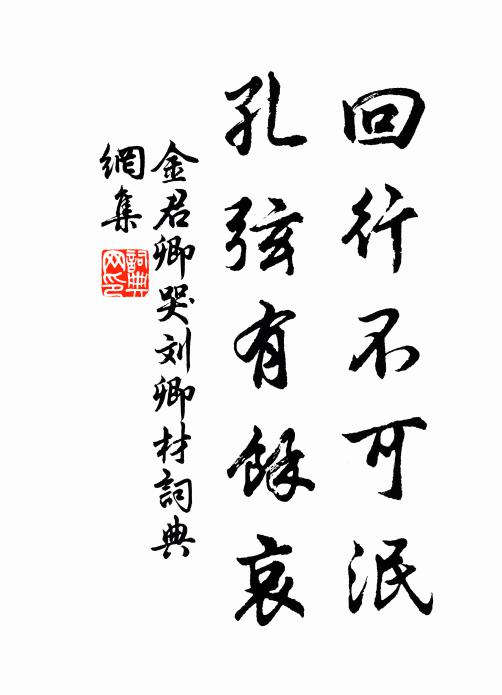 回行不可泯
孔弦有餘哀
金君卿哭刘卿材詞典
網集
詞典网印